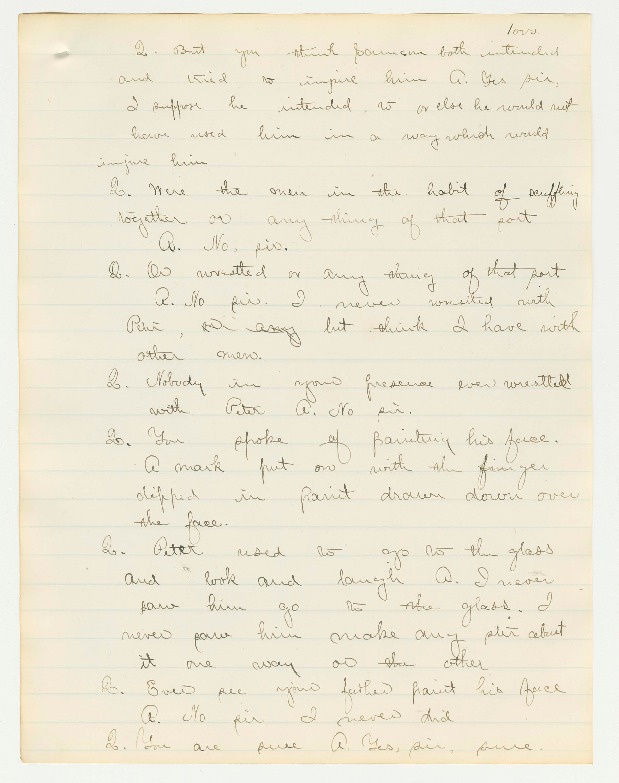 Q. But you think Jamison both intended
and tried to injure him A. Yes sir,
I suppose he intended to or else he would not
have used him in a way which would
injure him
Q. Were the men in the habit of scuffling
together or any thing of that sort
A. No, sir.
Q. Or wrestled or any thing of that sort
A. No sir. I never wrestled with
Peter, but think I have with
other men.
Q. Nobody in your presence ever wrestled
with Peter A. No sir.
Q. You spoke of painting his face.
A mark put on with the finger
dipped in paint drawn down over
the face.
Q. Peter used to go to the glass
and look and laugh A. I never
saw him go to the glass. I
never saw him make any stir about
it one way or the other
Q. Ever see your father paint his face
A. No sir I never did
Q. You are sure A. Yes, sir, sure.